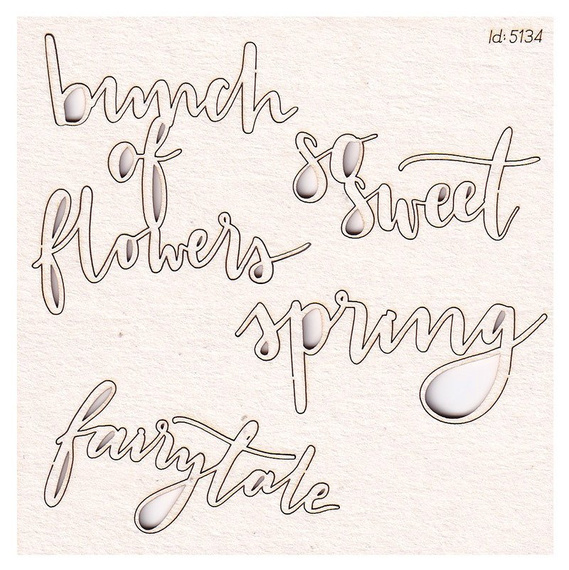 Id: 5134
bunch
of
flowers
so
sweet
spring
fairytale